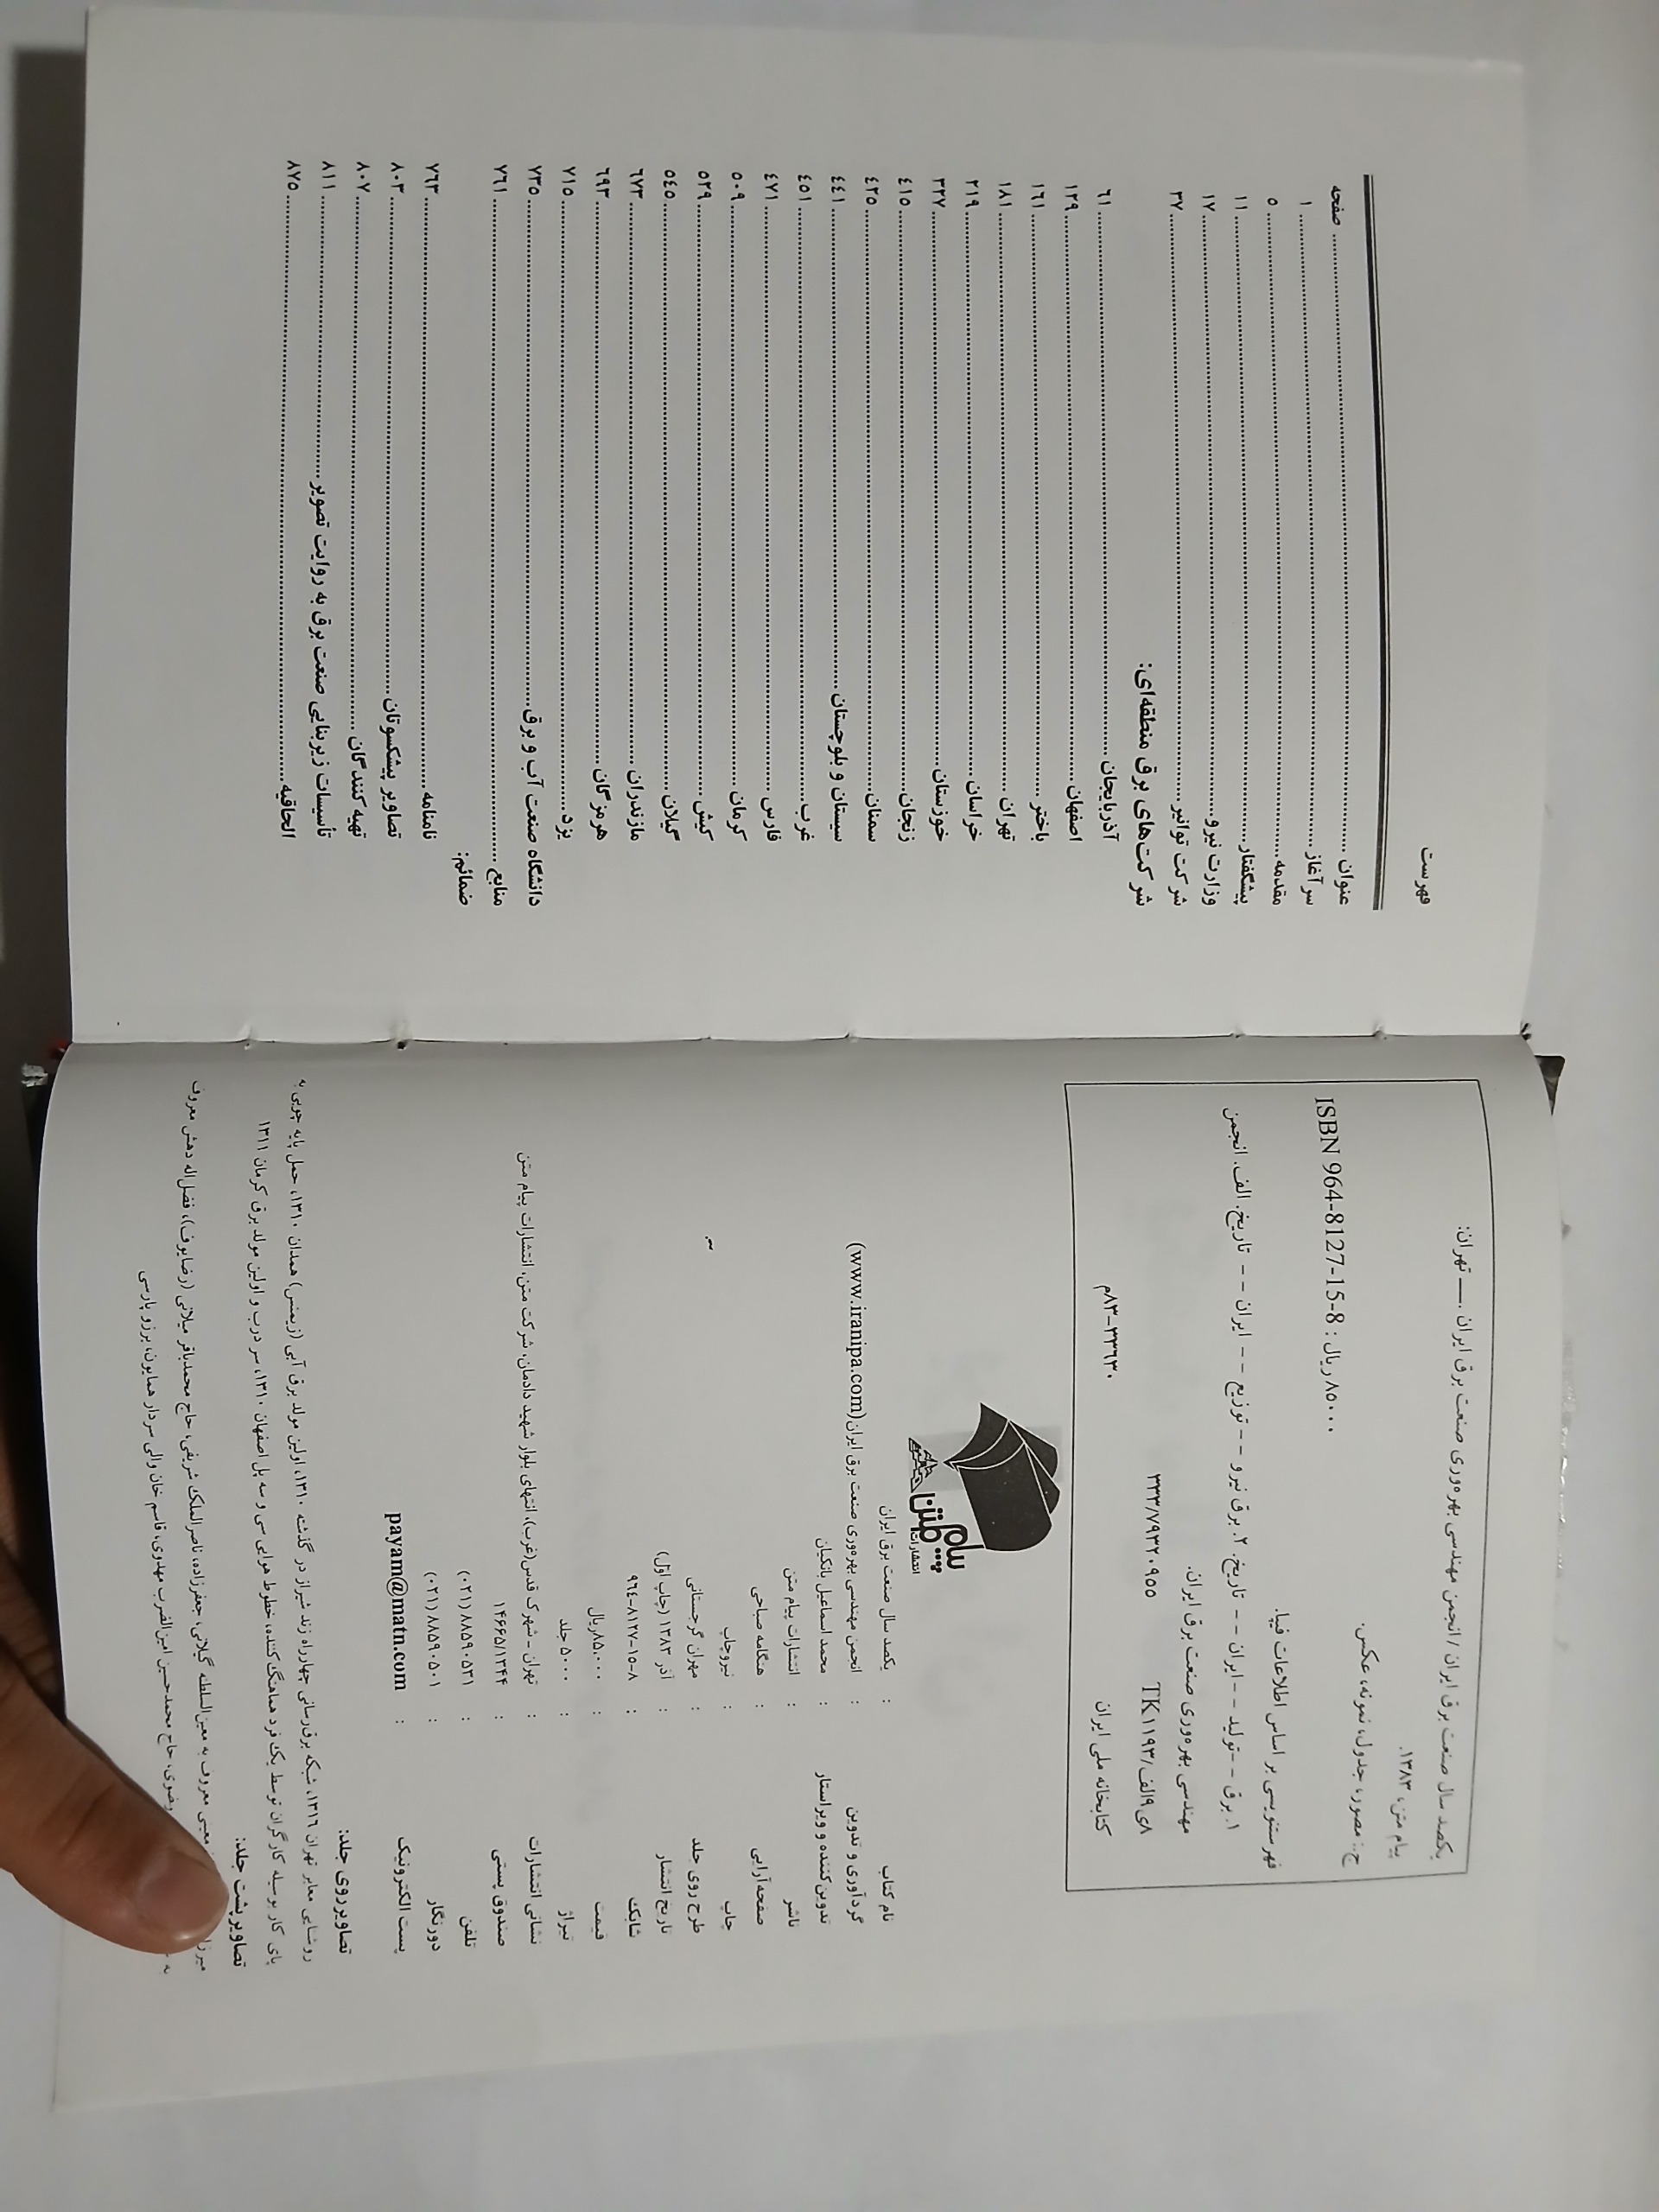 یکصد سال صنعت برق ایران / انجمن مهندسی بهره‌وری صنعت برق ایران .ــ تهران:
پیام متن، ۱۳۸۳.
ح.: مصور، جدول، نمونه، عکس.
ISBN 964-8127-15-8 : ۸۵۰۰۰ ریال
فهرستنویسی بر اساس اطلاعات فیپا.
۱. برق - -تولید - -ایران - - تاریخ. ۲. برق نیرو - - توزیع - - ایران - - تاریخ. الف. انجمن
مهندسی بهره‌وری صنعت برق ایران.
۸ی۹الف/TK۱۱۹۳ ۳۳۳/۷۹۳۲۰۹۵۵
کتابخانه ملی ایران ۳۳۶۳۰-۸۳م
انتشارات
پیام متن
نام کتاب : یکصد سال صنعت برق ایران
گردآوری و تدوین : انجمن مهندسی بهره‌وری صنعت برق ایران(www.iranipa.com)
تدوین‌کننده و ویراستار : محمد اسماعیل بانکیان
ناشر : انتشارات پیام متن
صفحه‌آرایی : هنگامه صباحی
چاپ : نیروچاپ
طرح روی جلد : مهران گرجستانی
تاریخ انتشار : آذر ۱۳۸۳ (چاپ اوّل)
شابک : ۹۶۴-۸۱۲۷-۱۵-۸
قیمت : ۸۵۰۰۰ریال
تیراژ : ۵۰۰۰ جلد
نشانی انتشارات : تهران - شهرک قدس(غرب)، انتهای بلوار شهید دادمان، شرکت متن، انتشارات پیام متن
صندوق پستی : ۱۴۶۶۵/۱۳۴۴
تلفن : ۸۸۵۹۰۵۳۱ (۰۲۱)
دورنگار : ۸۸۵۹۰۵۰۱ (۰۲۱)
پست الکترونیک : payam@matn.com
تصاویر روی جلد:
روشنایی معابر تهران ۱۳۱۶، شبکه برق‌رسانی چهارراه زند شیراز در گذشته ۱۳۱۰، اولین مولد برق آبی (زیمنس) همدان ۱۳۱۰، حمل پایه چوبی به
پای کار بوسیله کارگران توسط یک فرد هماهنگ‌کننده، خطوط هوایی سی و سه پل اصفهان ۱۳۱۰، سر درب و اولین مولد برق کرمان ۱۳۱۱
تصاویر پشت جلد:
میرزا معینی معروف به معین‌السلطنه گیلانی، جعفرزاده، ناصرالملک شریفی، حاج محمدباقر میلانی (رضایوف)، فضل‌اله دهش معروف
به رضوی، حاج محمدحسین امین‌الضرب مهدوی، قاسم خان والی سردار همایون، برزو پارسی
فهرست
عنوان ........ صفحه
سرآغاز ........ ۱
مقدمه ........ ۵
پیشگفتار ........ ۱۱
وزارت نیرو ........ ۱۷
شرکت توانیر ........ ۳۷
شرکت‌های برق منطقه‌ای:
آذربایجان ........ ۶۱
اصفهان ........ ۱۳۹
باختر ........ ۱۶۱
تهران ........ ۱۸۱
خراسان ........ ۲۱۹
خوزستان ........ ۳۳۷
زنجان ........ ۴۱۵
سمنان ........ ۴۲۵
سیستان و بلوچستان ........ ۴۴۱
غرب ........ ۴۵۱
فارس ........ ۴۷۱
کرمان ........ ۵۰۹
کیش ........ ۵۳۹
گیلان ........ ۵۴۵
مازندران ........ ۶۷۳
هرمزگان ........ ۶۹۳
یزد ........ ۷۱۵
دانشگاه صنعت آب و برق ........ ۷۳۵
منابع ........ ۷۶۱
ضمائم:
نامنامه ........ ۷۶۳
تصاویر پیشکسوتان ........ ۸۰۳
تهیه کنندگان ........ ۸۰۷
تأسیسات زیربنایی صنعت برق به روایت تصویر ........ ۸۱۱
الحاقیه ........ ۸۷۵